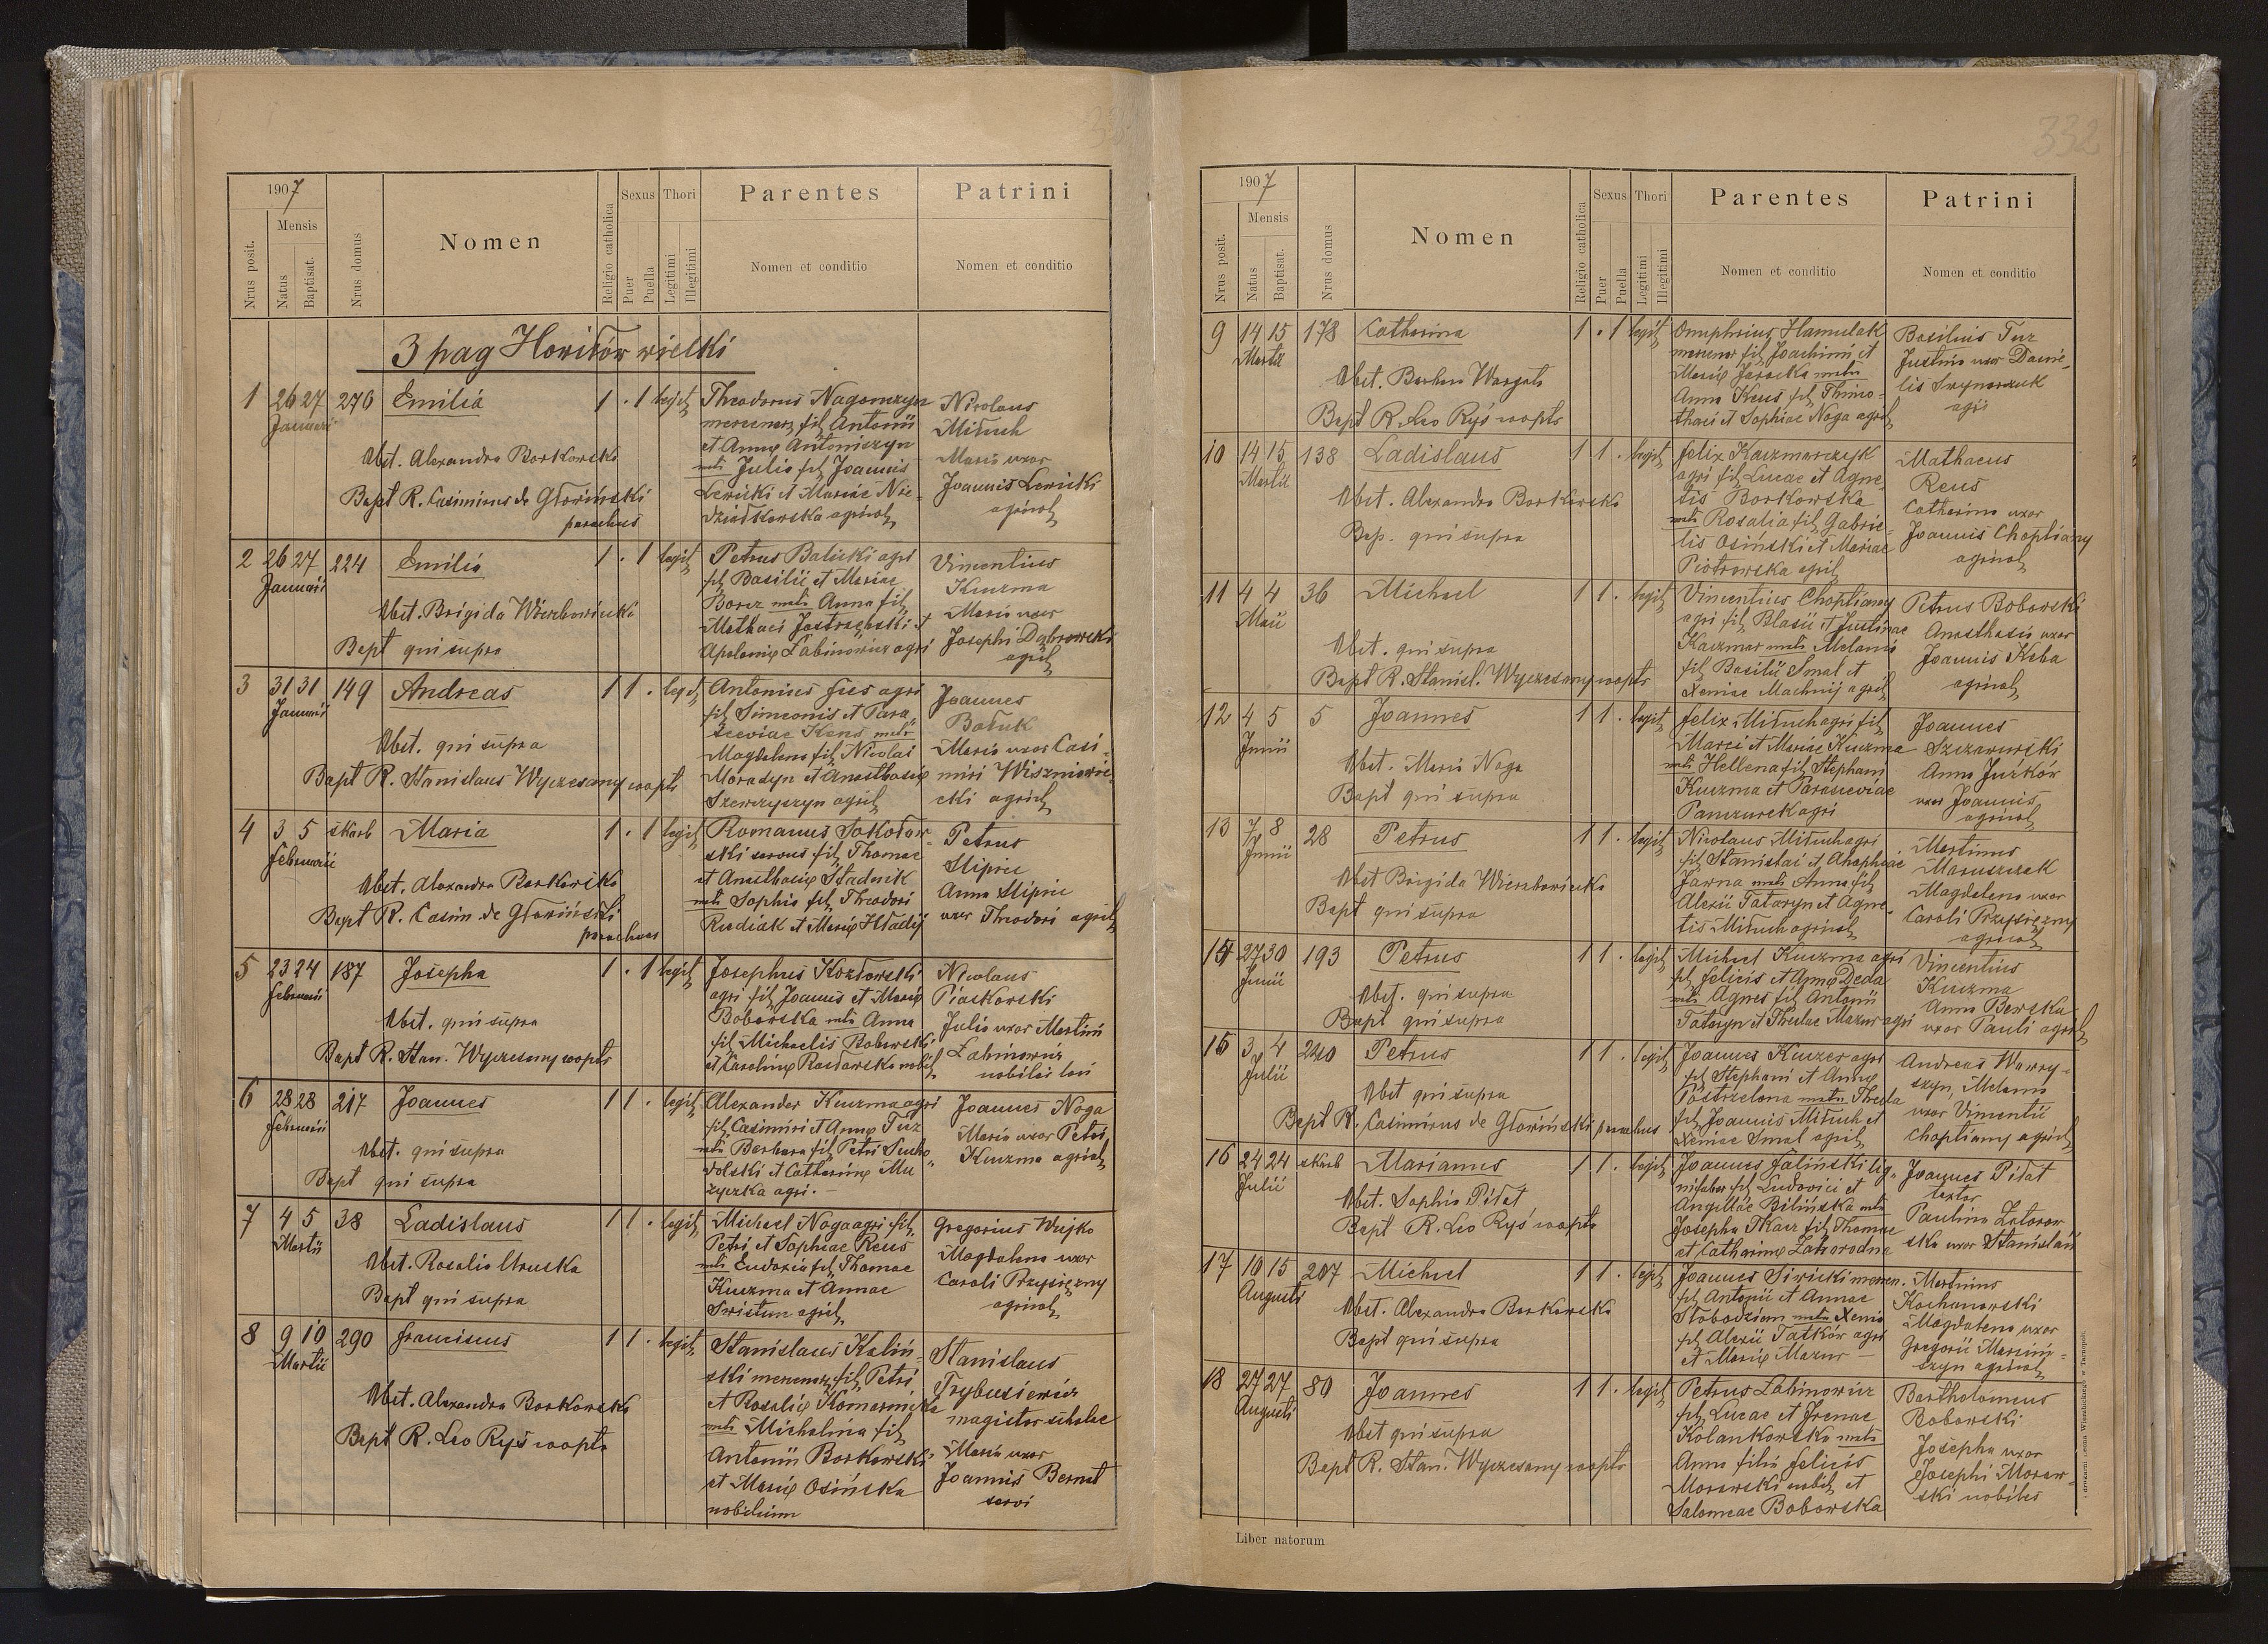 1907
Nrus posit.
Mensis
Natus
Baptisat.
Nrus domus
Nomen
Religio catholica
Sexus
Puer
Puella
Thori
Legitimi
Illegitimi
Parentes
Nomen et conditio
Patrini
Nomen et conditio
3 pag Howiłów wielki
1 26 27 Januarii 276 Emilia 1 . 1 legit
Obst. Alexandra Borkowska
Bapt R. Casimirus de Głowiński
parochus
Theodorus Nagomzyn
mercenar fil Antonii
et Annę Antoniszyn
mat Julia fil Joannis
Lewicki et Mariae Nie-
dziadkowska agricol
Nicolaus
Mituch
Maria uxor
Joannis Lewicki
agricol
2 26 27 Januarii 224 Emilia 1 . 1 legit
Obst. Brigida Wierzbowicka
Bapt qui supra
Petrus Balicki agri
fil Basilii et Mariae
Borcz mat Anna fil
Mathaei Jastrzębski et
Apolonię Łabinowicz agri
Vincentius
Kuczma
Maria uxor
Josephi Dąbrowski
agricol
3 31 31 Januarii 149 Andreas 1 1 . legit
Obst. qui supra
Bapt R. Stanislaus Wyczesany coopts
Antonius Fus agri
fil Simeonis et Para-
sceviae Kens mat
Magdalena fil Nicolai
Moradyn et Anasthasię
Szewczyszyn agricol
Joannes
Bobuk
Maria uxor Casi-
miri Wiszniowie-
cki agricol
4 3 5 Februarii skarb Maria 1 . 1 legit
Obst. Alexandra Borkowska
Bapt R. Casim de Głowiński
parochus
Romanus Sokołow-
ski servus fil Thomae
et Anasthasię Stadnik
mat Sophia fil Theodori
Rudiak et Marię Hładij
Petrus
Slipric
Anna Slipric
uxor Theodori agricol
5 23 24 Februarii 187 Josepha 1 . 1 legit
Obst. qui supra
Bapt R. Stan. Wyczesany coopts
Josephus Kozłowski
agri fil Joannis et Marię
Bobowska mat Anna
fil Michaelis Bobowski
et Carolinę Rozłowska nobil
Nicolaus
Piaskowski
Julia uxor Martini
Łabinowicz
nobiles loci
6 28 28 Februarii 217 Joannes 1 1 . legit
Obst. qui supra
Bapt qui supra
Alexander Kuczma agri
fil Casimiri et Annę Tuz
mat Barbara fil Petri Sucho-
dolski et Catharinę Mu
życzka agri.
Joannes Noga
Maria uxor Petri
Kuczma agricol
7 4 5 Martii 38 Ladislaus 1 1 . legit
Obst. Rosalia Uruska
Bapt qui supra
Michael Noga agri fil
Petri et Sophiae Reus
mat Eudoxia fil Thomae
Kuczma et Annae
Swistun agricol
Gregorius Wujko
Magdalena uxor
Caroli Przysiężny
agricol
8 9 10 Martii 290 Franciscus 1 1 . legit
Obst. Alexandra Borkowska
Bapt R. Leo Ryś coopts
Stanislaus Kaliń-
ski mercenar fil Petri
et Rosalię Komarnicka
mat Michalina fil
Antonii Borkowski
et Marię Osińska
nobilium
Stanislaus
Trybusiewicz
magister scholae
Maria uxor
Joannis Bernat
servi
332
1907
Nrus posit.
Mensis
Natus
Baptisat.
Nrus domus
Nomen
Religio catholica
Sexus
Puer
Puella
Thori
Legitimi
Illegitimi
Parentes
Nomen et conditio
Patrini
Nomen et conditio
9 14 15 Martii 178 Catharina 1 . 1 legit
Obst. Barbara Wargata
Bapt R. Leo Ryś coopts
Onuphrius Hamulak
mercenar fil Joachimi et
Marię Jarocka mat
Anna Keus fil Thimo-
thaei et Sophiae Noga agricol
Basilius Tuz
Justina uxor Danie-
lis Smynarczuk
agri
10 14 15 Martii 138 Ladislaus 1 1 . legit
Obst. Alexandra Borkowska
Bap. qui supra
Felix Kaczmarczyk
agri fil Lucae et Agne-
tis Borkowska
mat Rosalia fil Gabrie-
lis Osiński et Mariae
Piotrowska agricol
Mathaeus
Reus
Catharina uxor
Joannis Chopliany
agricol
11 4 4 Maii 36 Michael 1 1 . legit
Obst. qui supra
Bapt R. Stanisl. Wyczesany coopts
Vincentius Chopliany
agri fil Blasii et Justinae
Kaczmar mat Melania
fil Basilii Smal et
Xeniae Machnij agricol
Petrus Bobowski
Anasthasia uxor
Joannis Keba
agricol
12 4 5 Junii 5 Joannes 1 1 . legit
Obst. Maria Noga
Bapt qui supra
Felix Mituch agri fil
Marci et Mariae Kuczma
mat Hellena fil Stephani
Kuczma et Parasceviae
Panczurek agri
Joannes
Szczawurski
Anna Jurków
uxor Joannis
agricol
13 7 8 Junii 28 Petrus 1 1 . legit
Obst Brigida Wierzbowicka
Bapt qui supra
Nicolaus Mituch agri
fil Stanislai et Agaphiae
Jarna mat Anna fil
Alexii Tataryn et Agne-
tis Mituch agricol
Martinus
Maruszczak
Magdalena uxor
Caroli Przysiężny
agricol
14 27 30 Junii 193 Petrus 1 1 . legit
Obst. qui supra
Bapt qui supra
Michael Kuczma agri
fil Felicis et Annę Deda
mat Agnes fil Antonii
Tataryn et Theclae Mazur agri
Vincentius
Kuczma
Anna Berska
uxor Pauli agricol
15 3 4 Julii 240 Petrus 1 1 . legit
Obst qui supra
Bapt R. Casimirus de Głowiński parochus
Joannes Kuczer agri
fil Stephani et Annę
Postrzelona mat Thecla
fil Joannis Mituch et
Xeniae Smal agricol
Andreas Wawry-
szyn, Melania
uxor Vincentii
Chopliany agricol
16 24 24 Julii skarb Marianus 1 1 . legit
Obst. Sophia Pidat
Bapt R. Leo Ryś coopts
Joannes Faliński lig-
nifaber fil Ludovici et
Angillae Bilińska mat
Josepha Tkacz fil Thomae
et Catharinę Zahorodna
Joannes Pidat
textor
Paulina Zatorow
ska uxor Stanislai
17 10 15 Augusti 207 Michael 1 1 . legit
Obst. Alexandra Borkowska
Bapt qui supra
Joannes Siwicki mercen.
fil Antonii et Annae
Słobodzian mat Xenia
fil Alexii Tatków agri
et Marię Mazur
Martinus
Kochanowski
Magdalena uxor
Gregorii Marcini-
szyn agricol
18 27 27 Augusti 80 Joannes 1 1 . legit
Obst qui supra
Bapt R. Stan. Wyczesany coopts
Petrus Łabinowicz
fil Lucae et Irenae
Kolankowska mat
Anna filia Felicis
Morawski nobil et
Salomeae Bobowska
Bartholomeus
Bobowski
Josepha uxor
Josephi Moraw
ski nobiles
Liber natorum